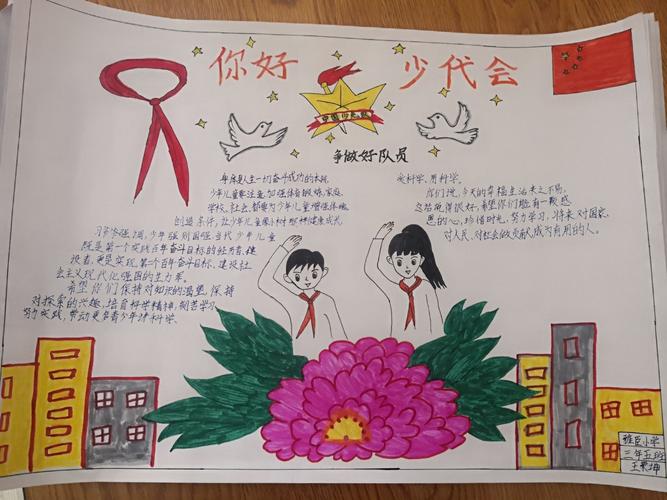 你好 少代会
中国少先队
争做好队员
身体是人生一切奋斗成功的本钱,
少年儿童要注意加强体育锻炼,家庭、
学校、社会、都要为少年儿童增强体魄
创造条件,让少年儿童像小树那样健康成长
习爷爷强调,少年强则国强,当代少年儿童
既是第一个实现百年奋斗目标的经历者、建
设者,更是实现第二个百年奋斗目标、建设社
会主义现代化强国的生力军。
希望你们保持对知识的渴望,保持
对探索的兴趣,培育科学精神,刻苦学习,
努力实践,带动更多青少年讲科学、
爱科学、用科学。
你们说,今天的幸福生活来之不易,
这话说得很好,希望你们怀着一颗感
恩的心,珍惜时光,努力学习,将来对国家、
对人民、对社会做贡献,成为有用的人。
小学
三年五班
王 坤